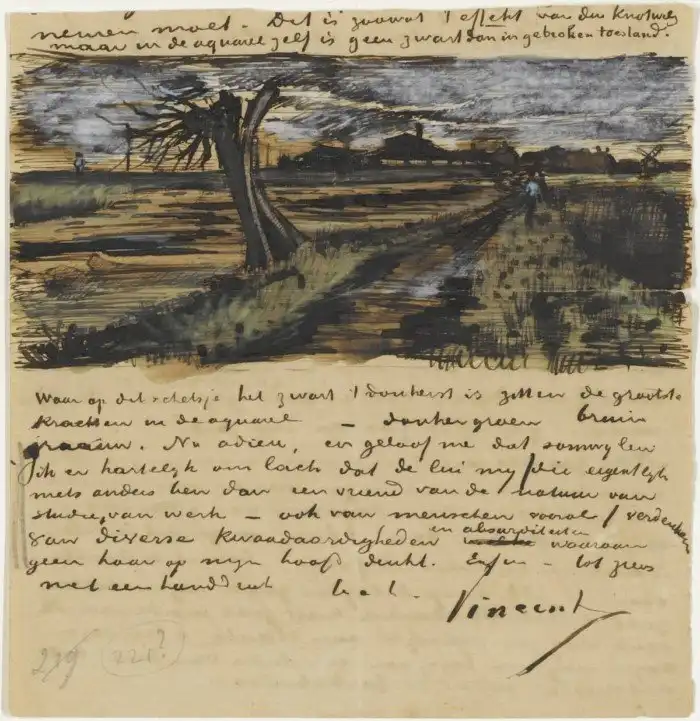 nemen moet. Dit is zoowat 't effekt van den Knotwilg
maar in de aquarel zelf is geen zwart dan in gebroken toestand.
Waar op dit schetsje het zwart 't donkerst is zitten de grootste
krachten in de aquarel — donkergroen bruin
graauw. Nu adieu, en geloof me dat somwylen
ik er hartelyk om lach dat de lui my /die eigentlyk
niets anders ben dan een vriend van de natuur van
studie, van werk – ook van menschen vooral/ verdenken
van diverse kwaadaardigheden en absurditeiten waaraan
geen haar op myn hoofd denkt. Enfin – tot ziens
met een handdruk t. à t. Vincent
229 225?